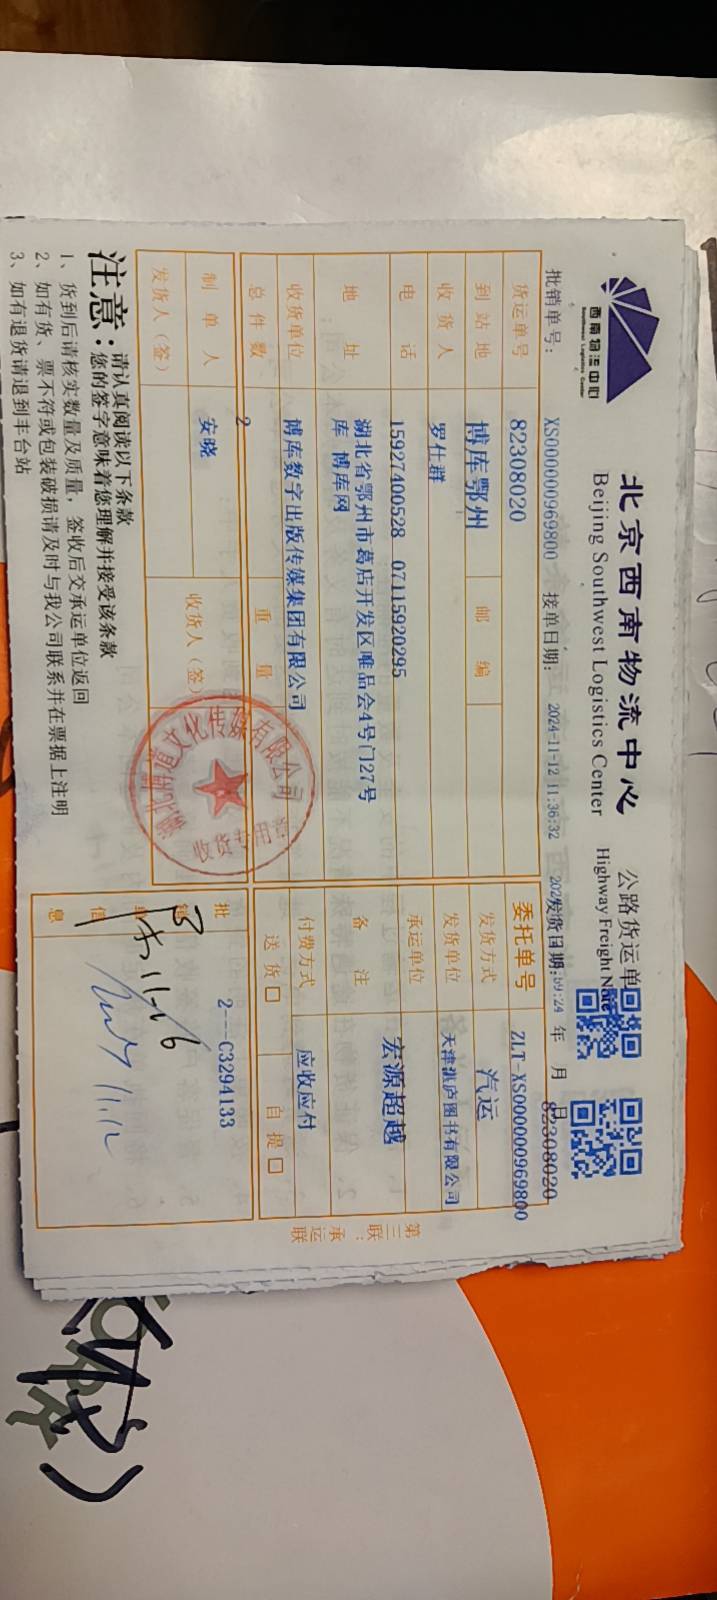 西南物流中心
Southwest Logistics Center
北京西南物流中心
Beijing Southwest Logistics Center
公路货运单
Highway Freight Note
批销单号: XS000000969800 接单日期: 2024-11-12 11:36:32 发货日期: 年 月 日
82308020
货运单号 82308020 委托单号 ZLT-XS000000969800
到站地 博库鄂州 邮编 发货方式 汽运
收货人 罗仕群 发货单位 天津湛庐图书有限公司
电话 15927400528 07115920295 承运单位 宏源超越
地址 湖北省鄂州市葛店开发区唯品会4号门27号
库 博库网
备注
收货单位 博库数字出版传媒集团有限公司 付费方式 应收应付
总件数 2 重量 送货□ 自提□
制单人 安晓 收货人(签) 批销单信息 2---C3294133
发货人(签)
文化传媒有限公司
收货专用章
11.12
注意:请认真阅读以下条款
您的签字意味着您理解并接受该条款
1、货到后请核实数量及质量,签收后交承运单位返回
2、如有货、票不符或包装破损请及时与我公司联系并在票据上注明
3、如有退货请退到丰台站
第三联:承运联